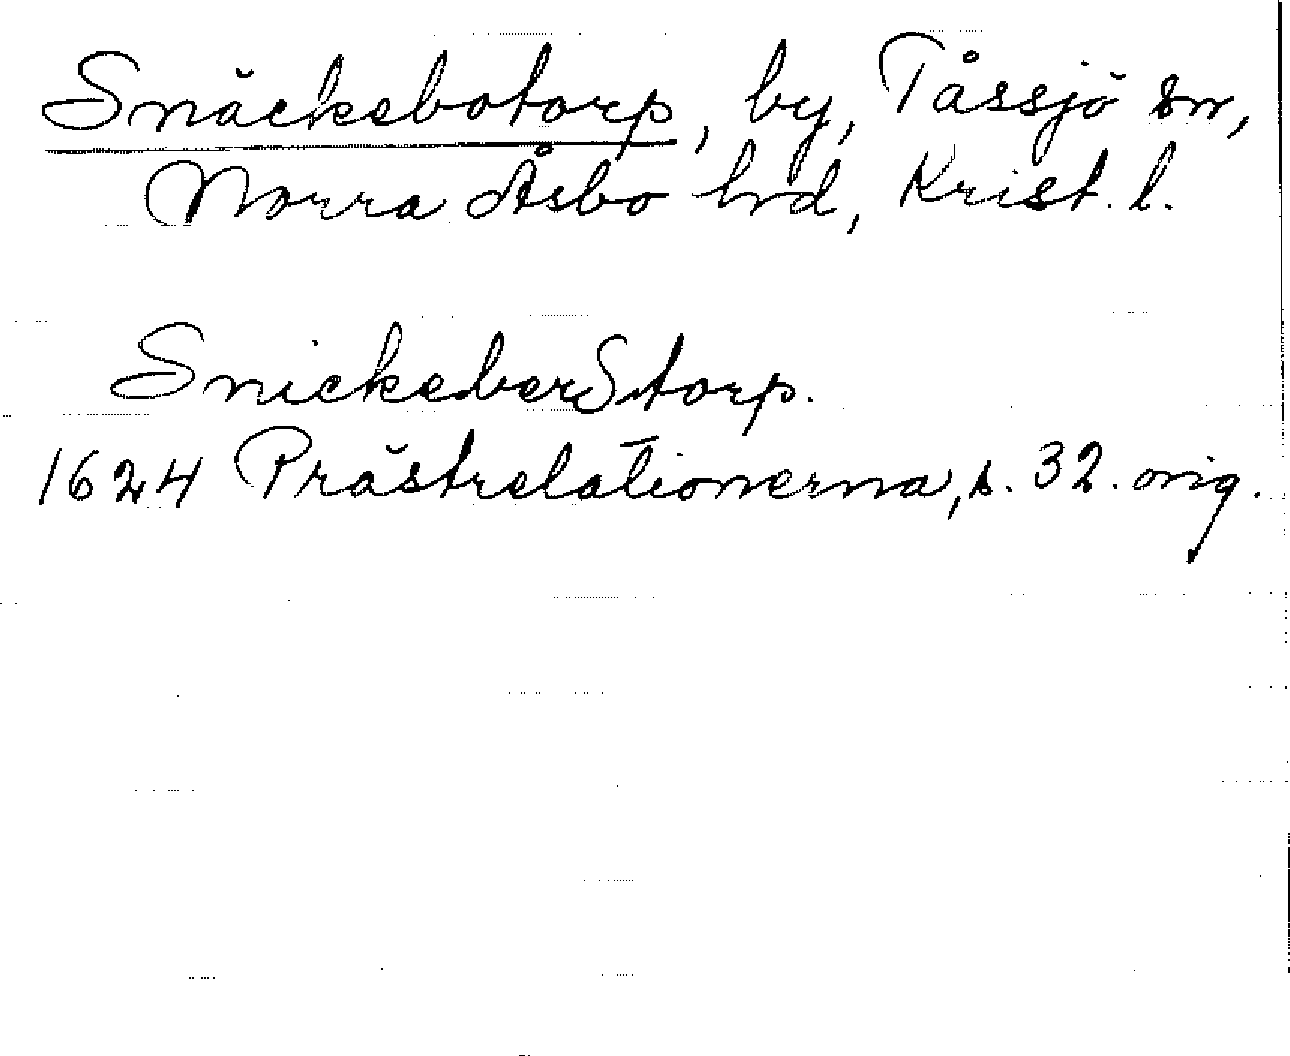 Snäckebotorp, by, Tåssjö sn,
Norra Åsbo hrd, Krist. l.
SnickeberStorp.
1624 Prästrelationerna, s. 32. orig.